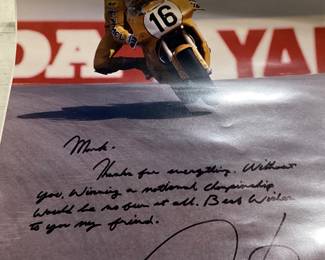 16
DA YAM
Mark.
Thanks for everything. Without
you, winning a national championship
would be no fun at all. Best Wishes
to you my friend.